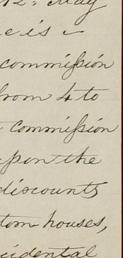 12. May
e is a
commiſsion
from 4 to
commiſsion
upon the
discounts
tom houses,
cidental